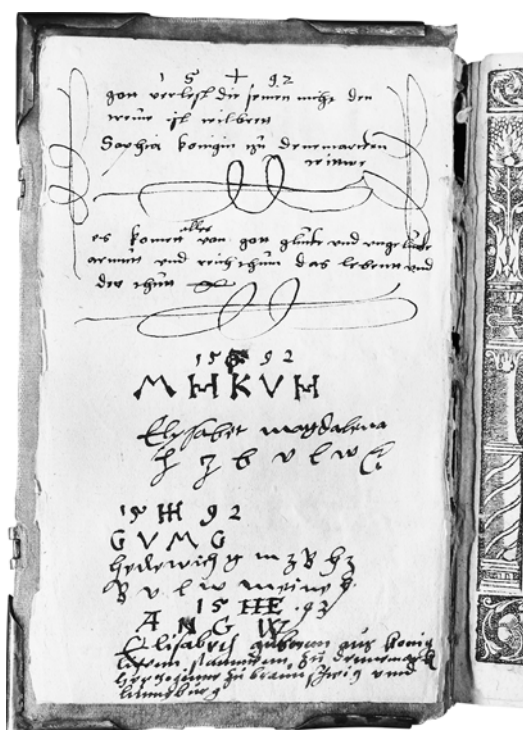 15 + 92
gott verlest die seinen nicht den
ist
Sophia konigin zu dennemarcken
wittwe
es komett alles von gott glücke und ungelücke
armutt und reichthum das lebenn und
der
15 92
M H H K V H
Elysabet magdalena
h z b v l w
15 HH 92
G V M G
hedewich g m z B h z
B v l w meine h
15 HHE 92
A N G W
Elisabeth geboren aus konig
lichem stammen, zu denemarck
hertzoginne zu braunschwig und
luneburg